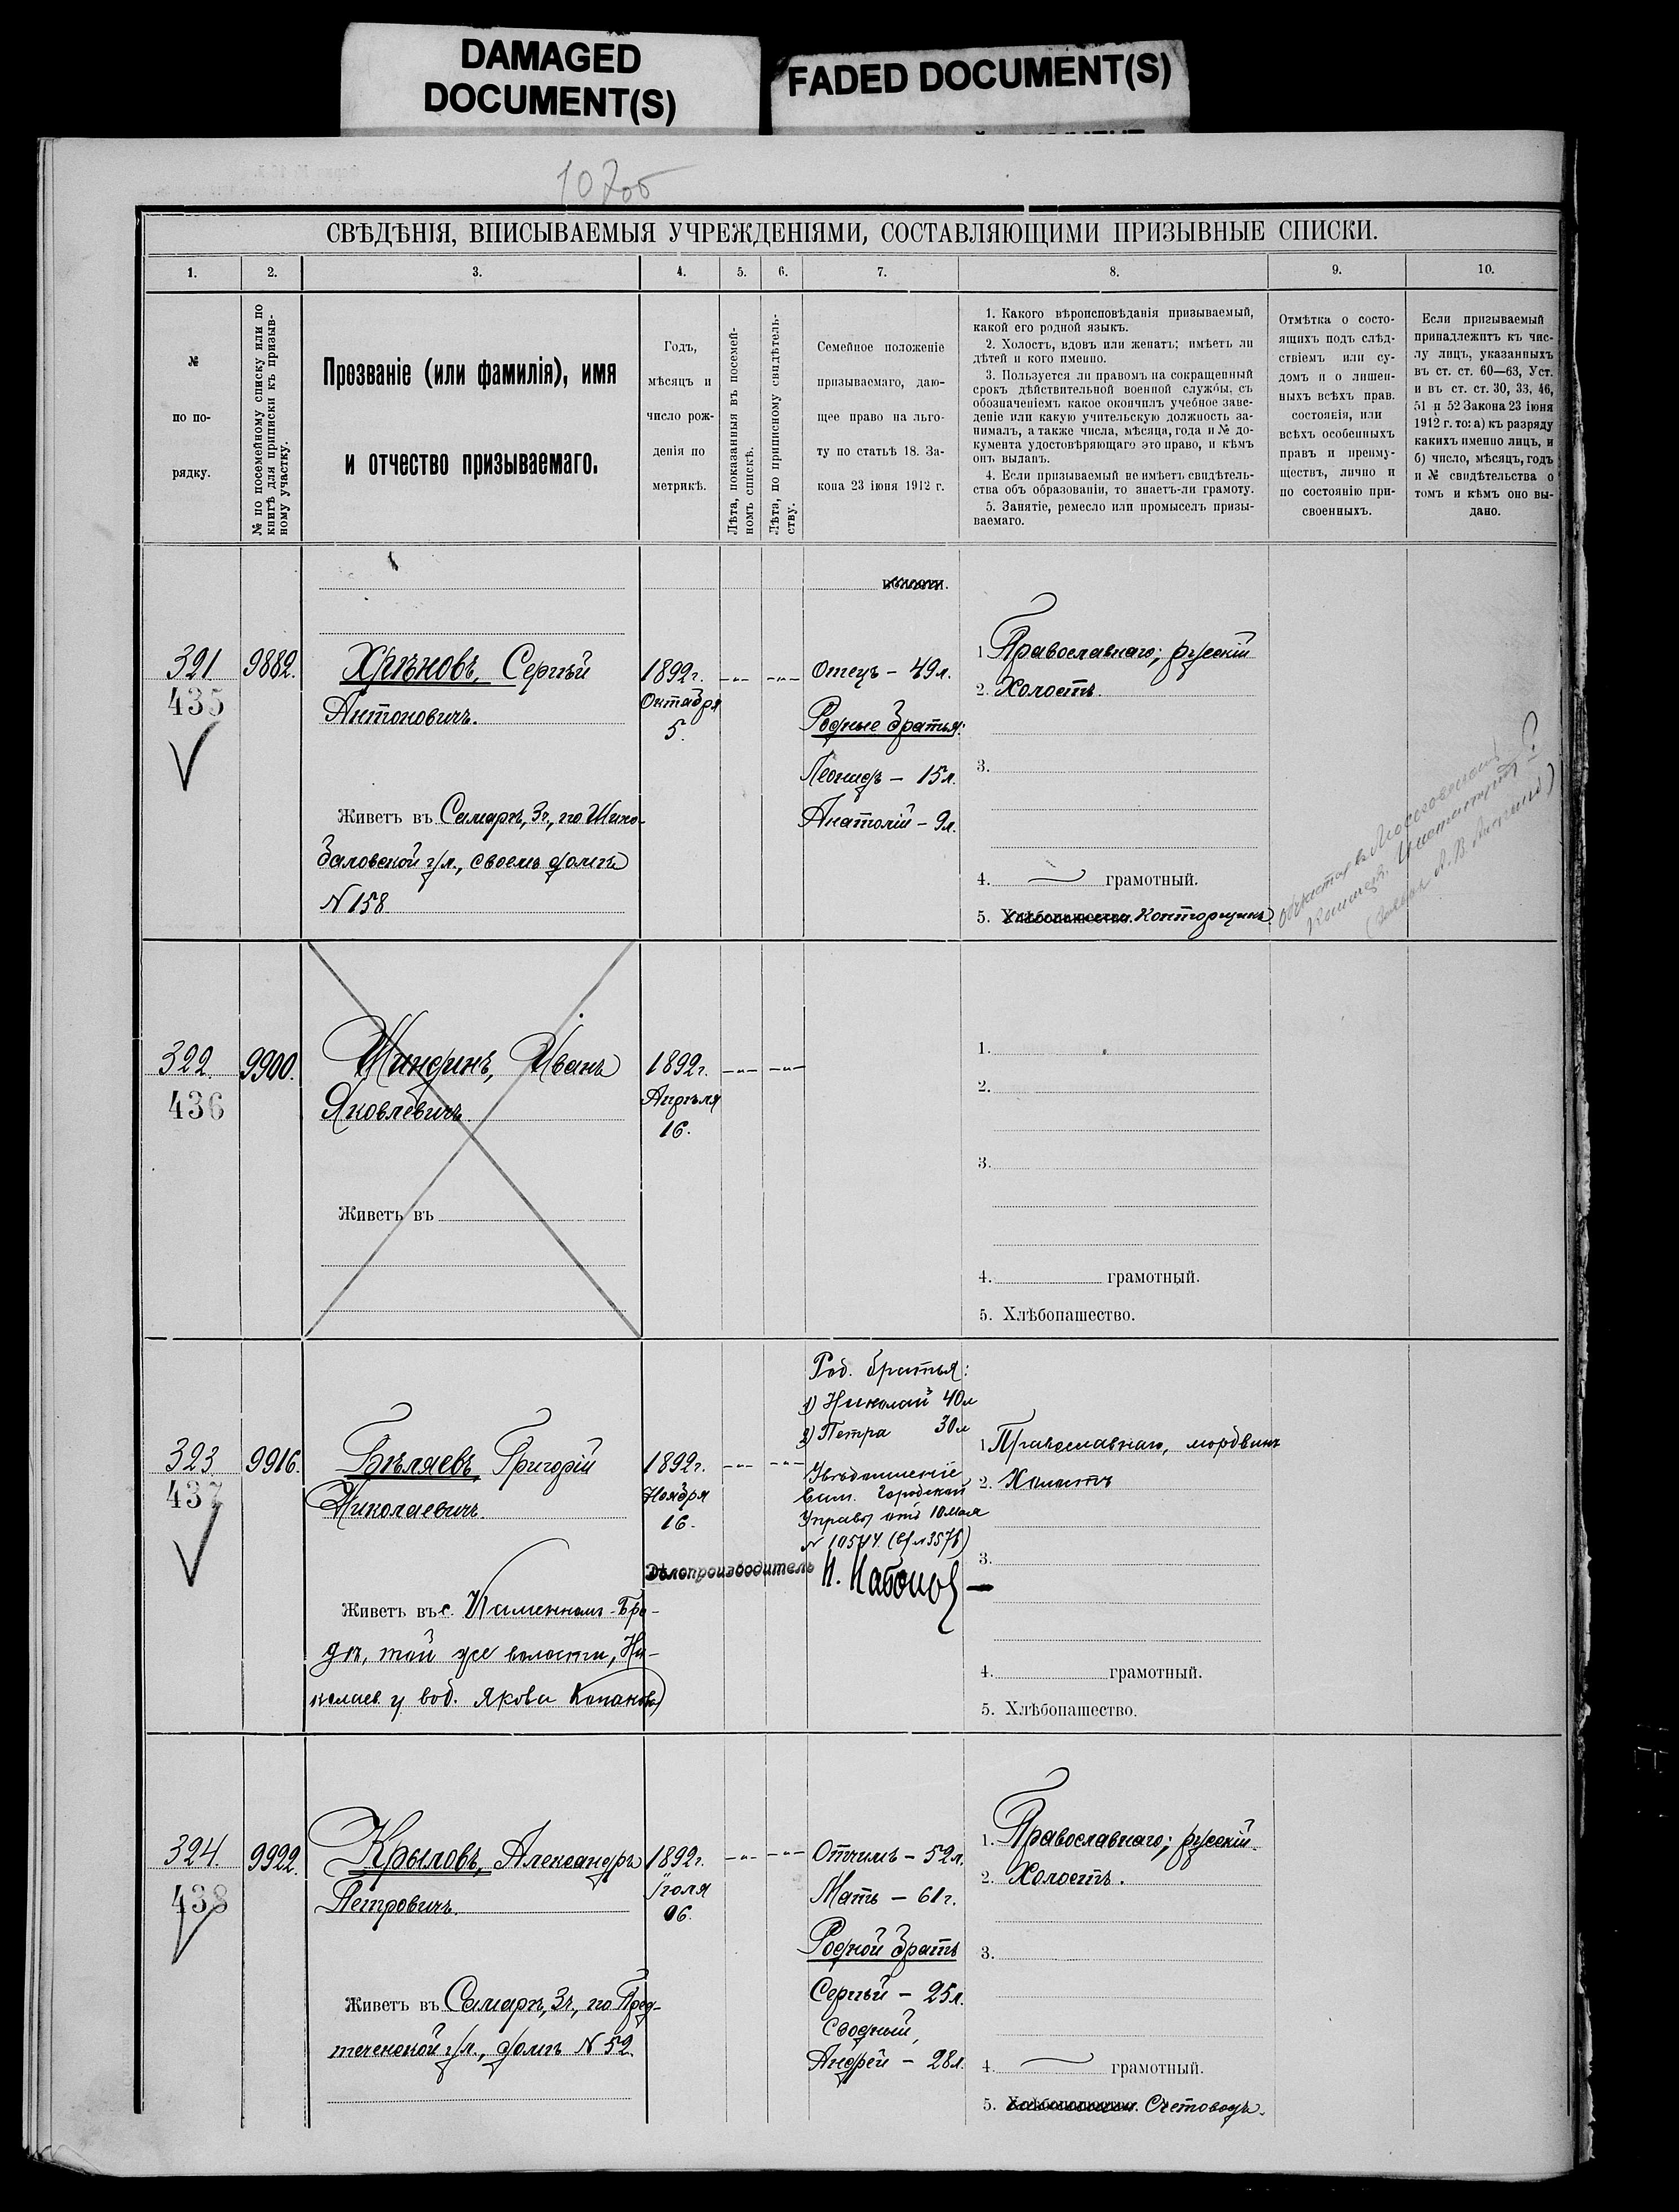 DAMAGED
DOCUMENT(S)
FADED DOCUMENT(S)
107об
СВѢДѢНІЯ, ВПИСЫВАЕМЫЯ УЧРЕЖДЕНІЯМИ, СОСТАВЛЯЮЩИМИ ПРИЗЫВНЫЕ СПИСКИ.
1. 2. 3. 4. 5. 6. 7. 8. 9. 10.
№
по по-
рядку.
№ по посемейному списку или по
книгѣ для приписки къ призыв-
ному участку.
Прозваніе (или фамилія), имя
и отчество призываемаго.
Годъ,
мѣсяцъ и
число рож-
денія по
метрикѣ.
Лѣта, показанныя въ посемей-
номъ спискѣ.
Лѣта, по приписному свидѣтель-
ству.
Семейное положеніе
призываемаго, даю-
щее право на льго-
ту по статьѣ 18. За-
кона 23 іюня 1912 г.
1. Какого вѣроисповѣданія призываемый,
какой его родной языкъ.
2. Холостъ, вдовъ или женатъ; имѣетъ ли
дѣтей и кого именно.
3. Пользуется ли правомъ на сокращенный
срокъ дѣйствительной военной службы, съ
обозначеніемъ какое окончилъ учебное заве-
деніе или какую учительскую должность за-
нималъ, а также числа, мѣсяца, года и № до-
кумента удостовѣряющаго это право, и кѣмъ
онъ выданъ.
4. Если призываемый не имѣетъ свидѣтель-
ства объ образованіи, то знаетъ-ли грамоту.
5. Занятіе, ремесло или промыселъ призы-
ваемаго.
Отмѣтка о состо-
ящихъ подъ слѣд-
ствіемъ или су-
домъ и о лишен-
ныхъ всѣхъ прав.
состоянія, или
всѣхъ особенныхъ
правъ и преиму-
ществъ, лично и
по состоянію при-
своенныхъ.
Если призываемый
принадлежитъ къ чис-
лу лицъ, указанныхъ
въ ст. ст. 60—63, Уст.
и въ ст. ст. 30, 33, 46,
51 и 52 Закона 23 іюня
1912 г. то: а) къ разряду
какихъ именно лицъ, и
б) число, мѣсяцъ, годъ
и № свидѣтельства о
томъ и кѣмъ оно вы-
дано.
волости.
321 9882.
435
Хрѣновъ, Сергѣй
Антоновичъ.
Живетъ въ Самарѣ, 3ч., по Шихо-
баловской ул., своемъ домѣ
N 158
1892г.
Октября
5.
Отецъ - 49л.
Родные братья:
Леонидъ - 15л.
Анатолій - 9л.
1 Православнаго; русскій
2. Холостъ.
3.
4. грамотный.
5. Хлѣбопашество. Конторщикъ
322. 9900.
436
Шиндинъ, Иванъ
Яковлевичъ
Живетъ въ
1892г.
Апрѣля
16.
1.
2.
3.
4. грамотный.
5. Хлѣбопашество.
323 9916.
437
Бѣляевъ, Григорій
Николаевичъ.
Живетъ въ с. Каменномъ-Бро-
дѣ, той же волости, Ни-
колаев у. вод. Якова
1892г.
Ноября
16.
Род. братья:
1) Николай 40л
2) Петра 30л
Увѣдомленіе
Сам. Городской
Управы отъ 10 мая
Дѣлопроизводитель
1. Православнаго, мордвинъ
2. Холостъ
3.
4. грамотный.
5. Хлѣбопашество.
324. 9922.
438
Крыловъ, Александръ
Петровичъ.
Живетъ въ Самарѣ, 3ч., по Пред-
теченской ул., домъ N 52
1892г.
Іюля
06.
Отчимъ - 52л.
Мать - 61г.
Родной братъ
Сергѣй - 25л.
Сводный,
Андрей - 28л.
1. Православнаго; русскій
2. Холостъ.
3.
4. грамотный.
5. Хлѣбопашество. Счетоводъ.